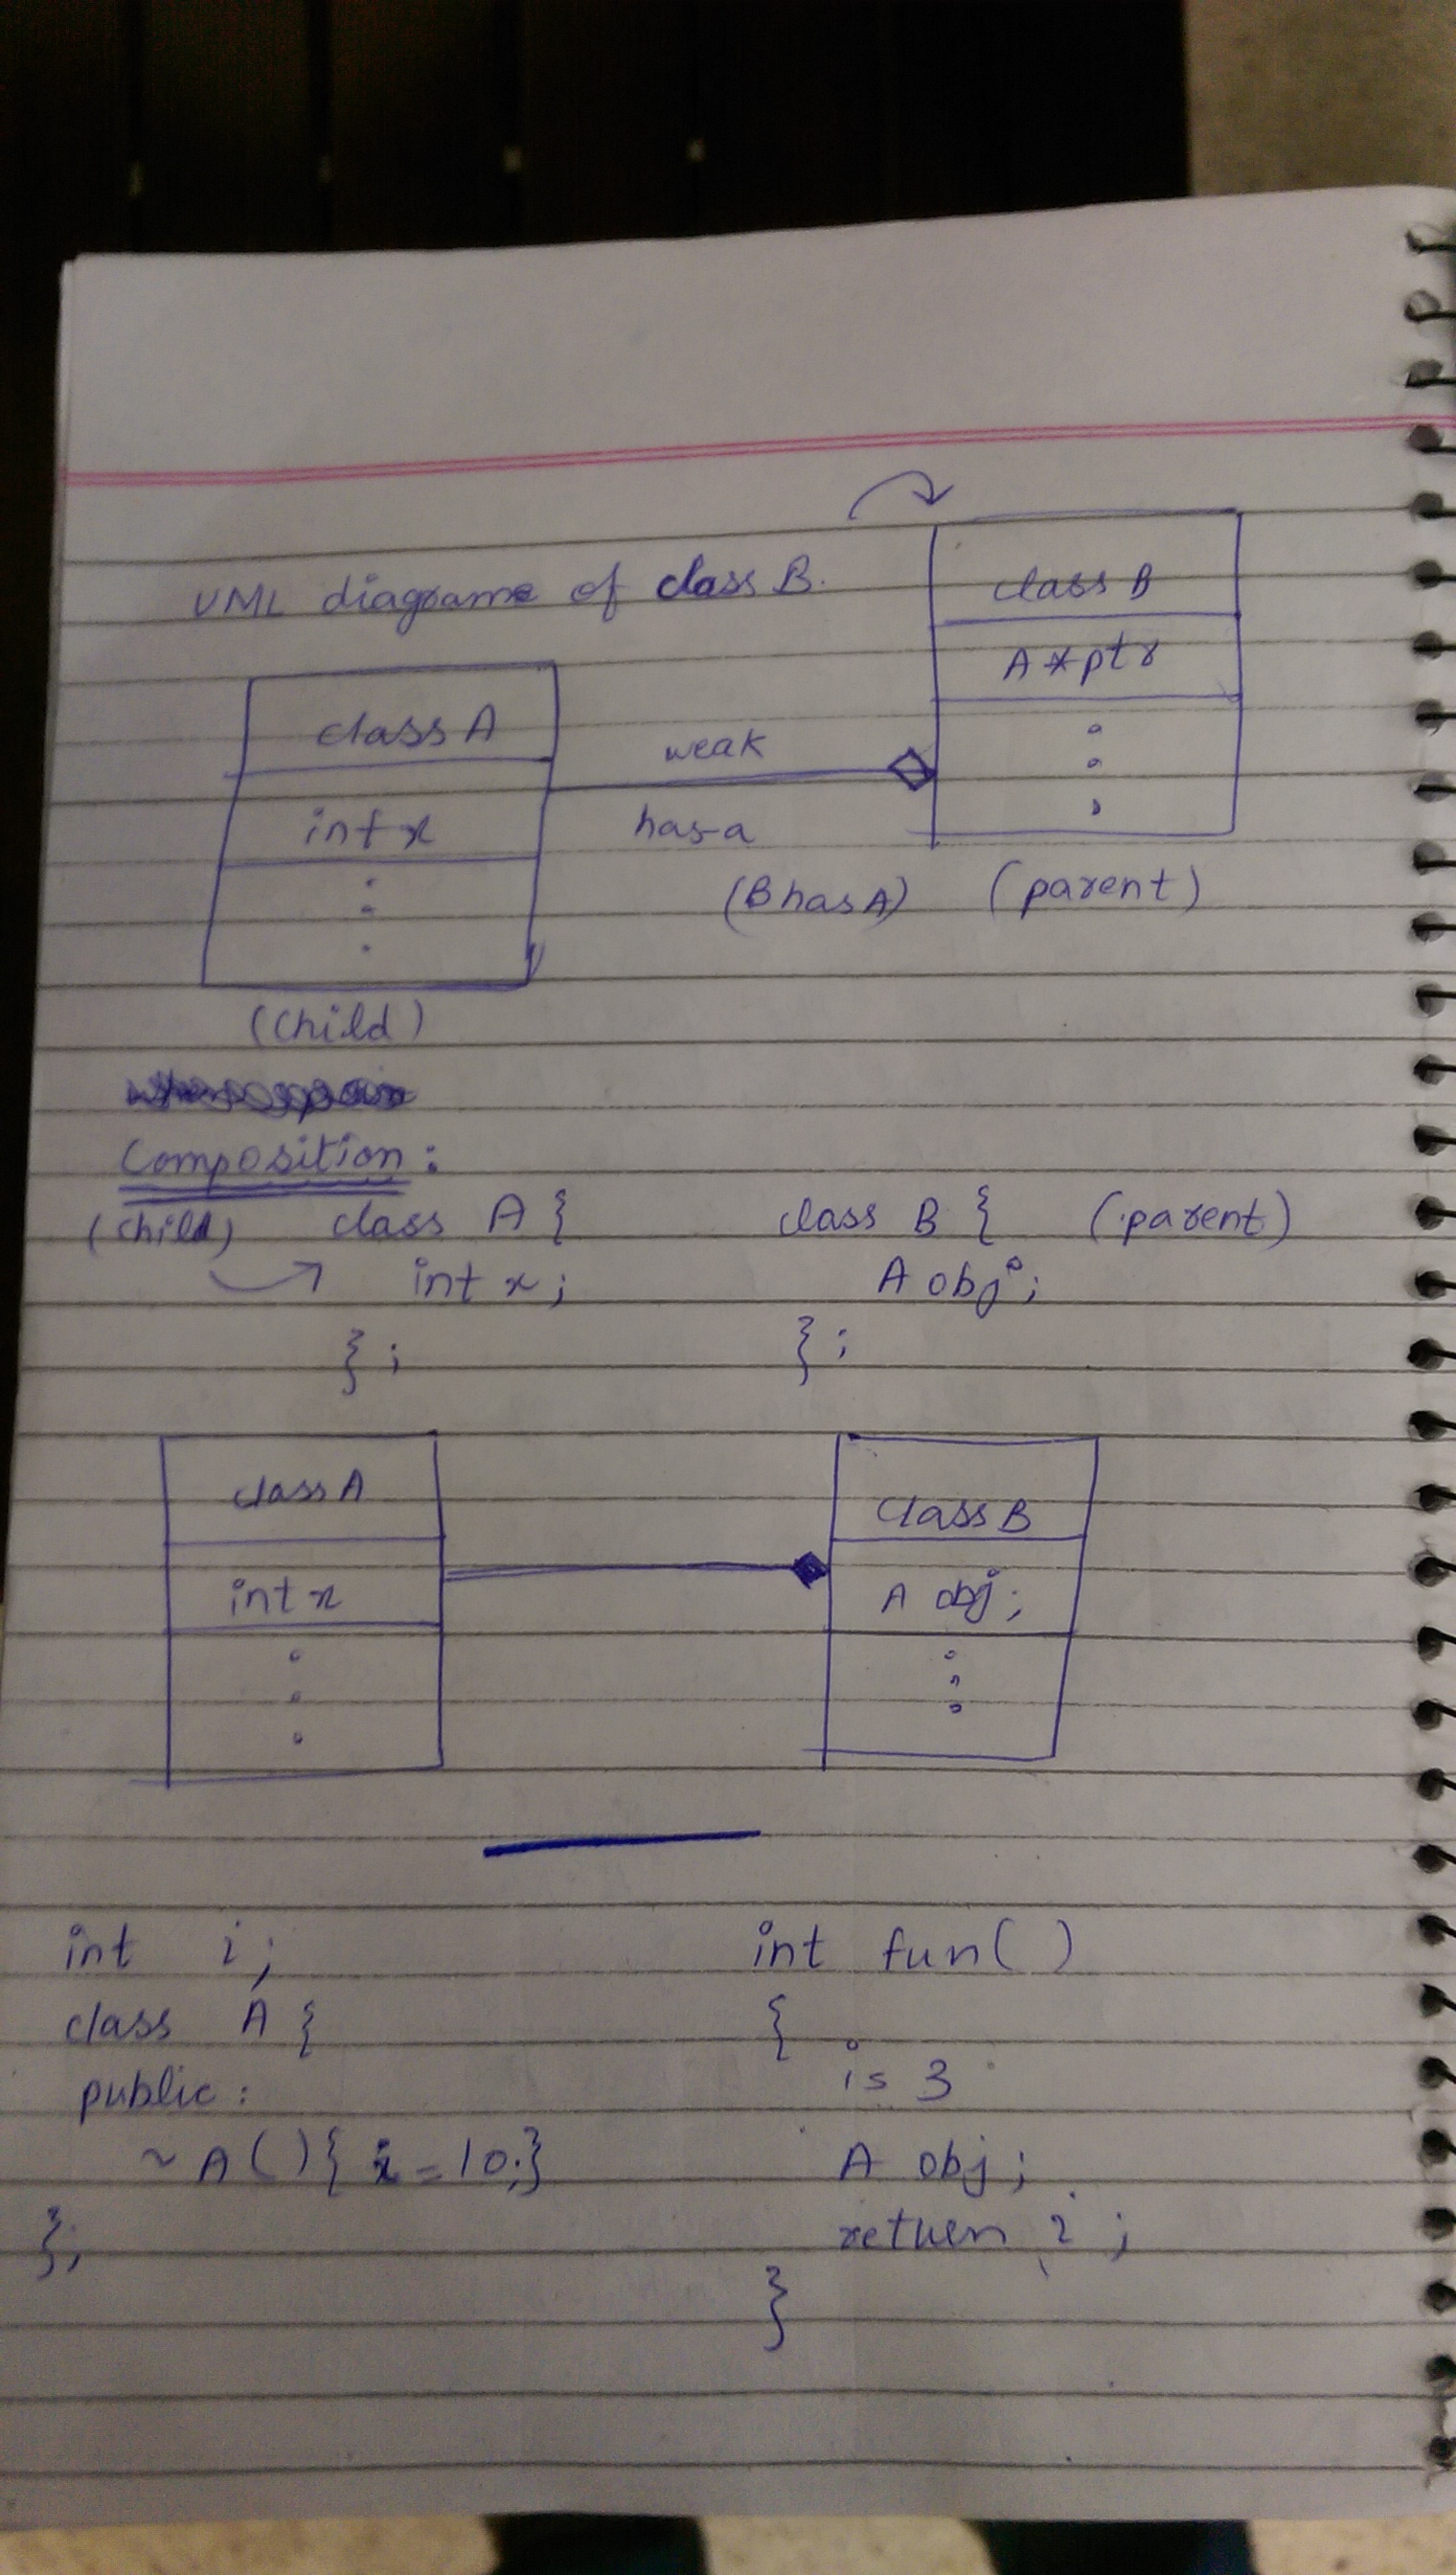 UML diagrame of class B.
class B
A *ptr
class A
int x
weak
has-a
(B has A) (parent)
(child)
Composition:
(child) class A { class B { (parent)
int x; A obj;
}; };
class A
int x
class B
A obj;
int i; int fun()
class A { {
public: is 3
~A(){ i=10;} A obj;
}; return i;
}